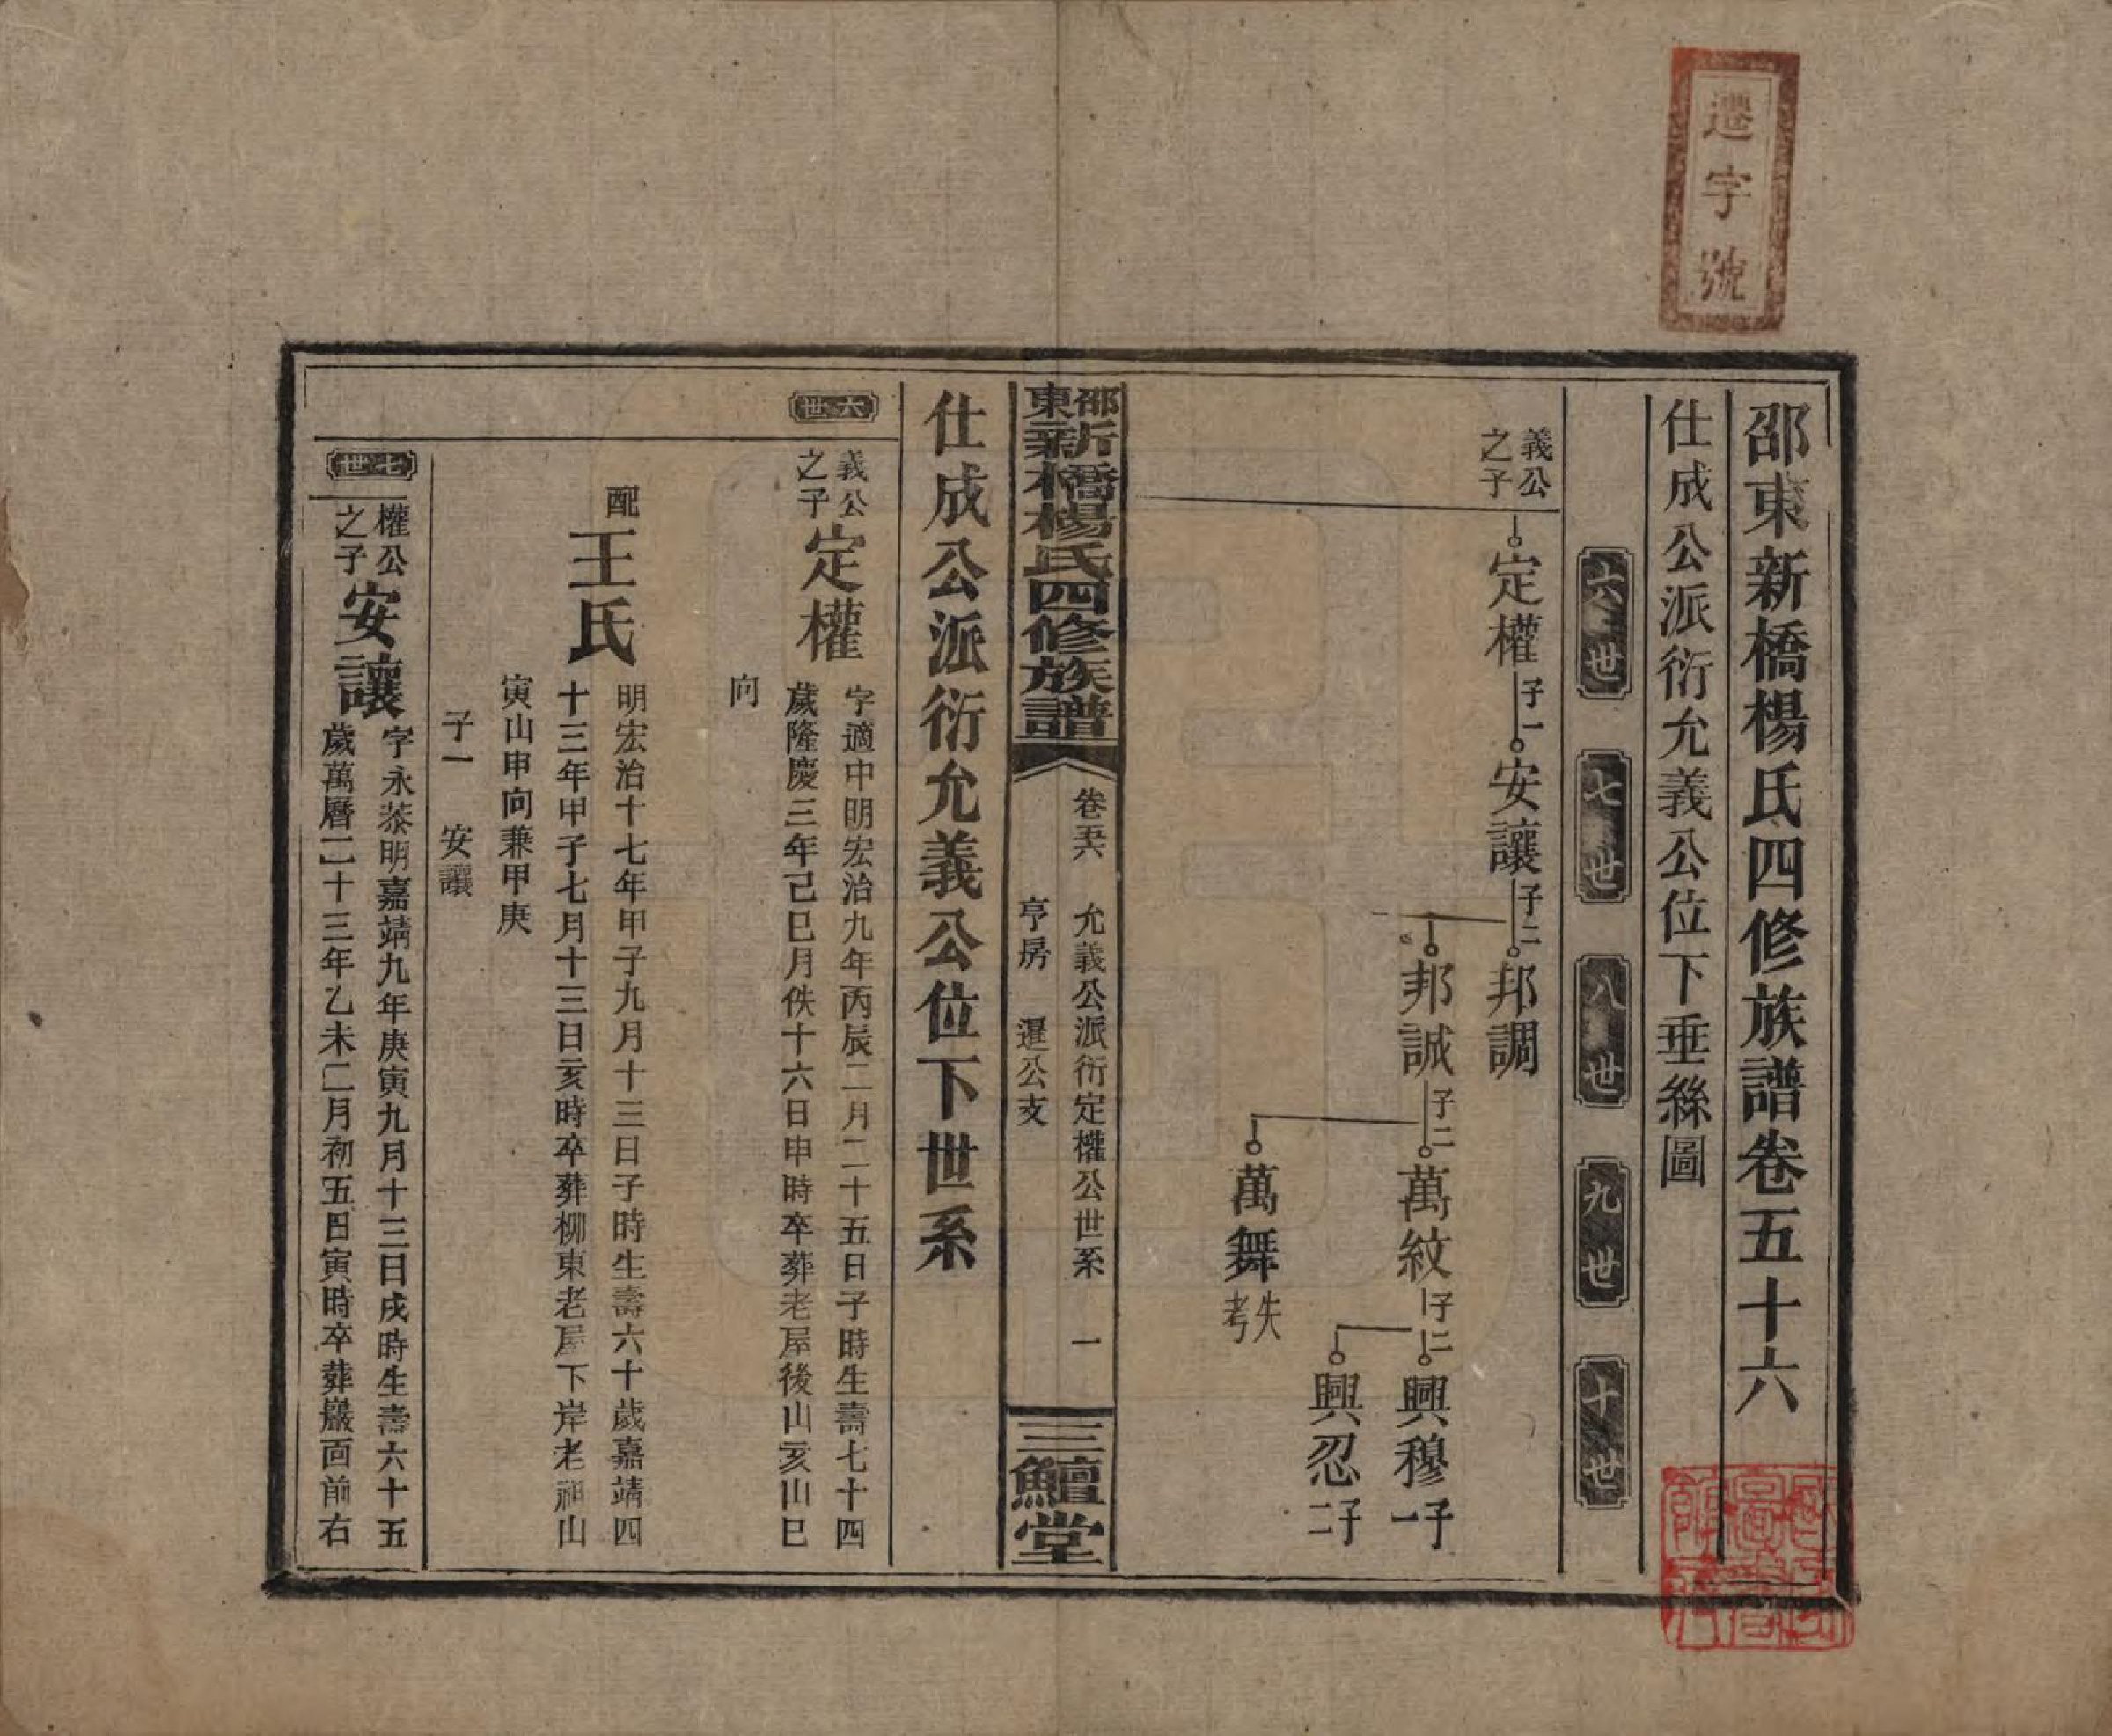 遷字號
邵東新橋楊氏四修族譜卷五十六
仕成公派衍允義公位下垂絲圖
六世 七世 八世 九世 十世
義公
之子
定權 子一 安讓 子二 邦調
邦誠 子二 萬紋 子二 興穆 子一
興忍 子二
萬舞 失考
邵東新橋楊氏四修族譜
卷五六 允義公派衍定權公世系 一
亨房 暹公支
三鱣堂
仕成公派衍允義公位下世系
六世
義公
之子
定權
字適中明宏治九年丙辰二月二十五日子時生壽七十四
歲隆慶三年己巳月佚十六日申時卒葬老屋後山亥山巳
向
配
王氏
明宏治十七年甲子九月十三日子時生壽六十歲嘉靖四
十三年甲子七月十三日亥時卒葬柳東老屋下岸老祖山
寅山申向兼甲庚
子一 安讓
七世
權公
之子
安讓
字永泰明嘉靖九年庚寅九月十三日戌時生壽六十五
歲萬曆二十三年乙未二月初五日寅時卒葬巖面前右